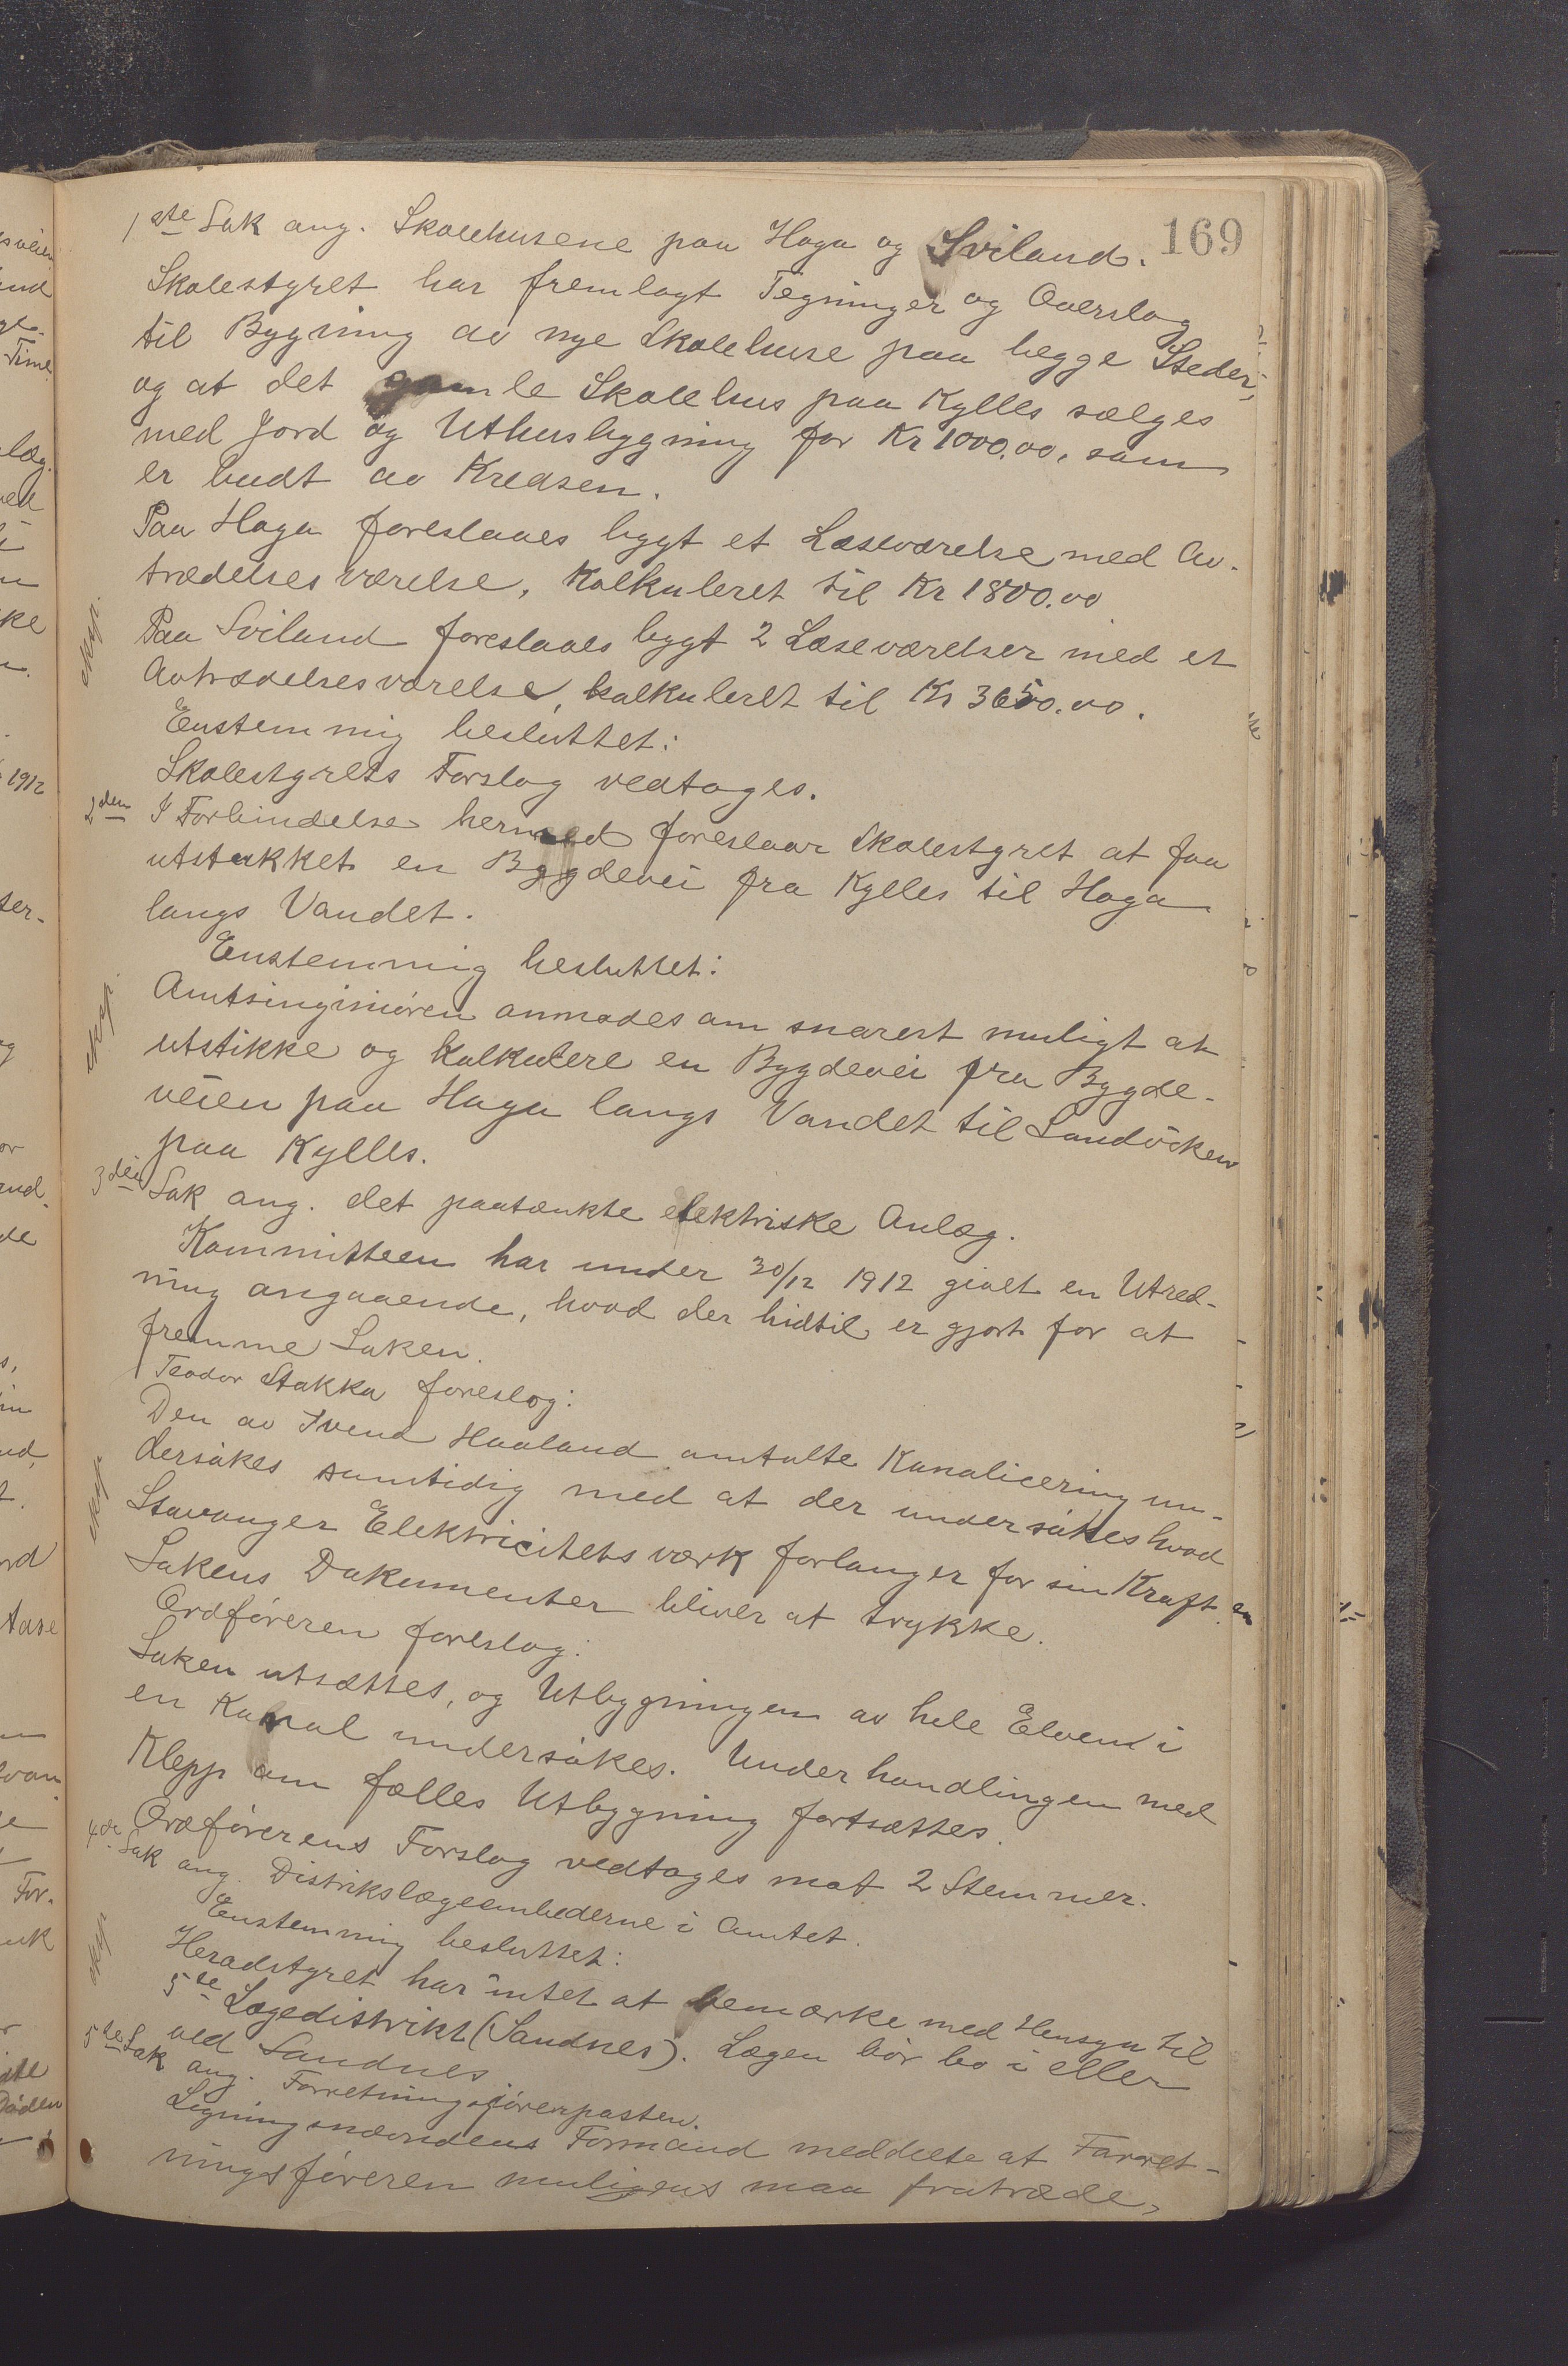 169
1ste Sak ang. Skolehusene paa Hoga og Sviland.
Skolestyret har fremlagt Tegninger og Overslag
til Bygning av nye Skolehuse paa begge Steder,
og at det gamle Skolehus paa Kylles sælges
med Jord og Uthusbygning for Kr 1000.00, som
er budt av Kredsen.
Paa Hoga foreslaaes bygt et Læseværelse med Av-
trædelsesværelse, kalkuleret til Kr 1800.00
eksp.
Paa Sviland foreslaaes bygt 2 Læseværelser med et
Avtrædelsesværelse, kalkuleret til Kr 3650.00.
Enstemmig besluttet:
Skolestyrets Forslag vedtages.
2den I Forbindelse hermed foreslaar Skolestyret at faa
utstukket en Bygdevei fra Kylles til Hoga
langs Vandet.
Enstemmig besluttet:
eksp.
Amtsingeniøren anmodes om snarest muligt at
utstikke og kalkulere en Bygdevei fra Bygde-
veien paa Hoga langs Vandet til Sandviken
paa Kylles.
3die Sak ang. det paatænkte elektriske Anlæg.
Kommitteen har under 30/12 1912 givet en Utred-
ning angaaende, hvad der hidtil er gjort for at
fremme Saken.
Teodor Stakka foreslog:
Den av Svend Haaland omtalte Kanalicering un-
eksp.
dersøkes samtidig med at der undersøkes hvad
Stavanger Elektricitetsværk forlanger for sin Kraft.
Sakens Dokumenter bliver at trykke.
Ordføreren foreslog:
Saken utsættes, og Utbygningen av hele Elven i
en Kanal undersøkes. Underhandlingen med
Klepp om fælles Utbygning fortsættes.
Ordførerens Forslag vedtages mot 2 Stemmer.
4de Sak ang. Distrikslægeembederne i Amtet.
Enstemmig besluttet:
eksp
Heradstyret har intet at bemærke med Hensyn til
5te Lægedistrikt (Sandnes). Lægen bør bo i eller
ved Sandnes
5te Sak ang. Forretningsførerposten.
Ligningsnævndens Formand meddelte at Forret-
ningsføreren muligens maa fratræde,